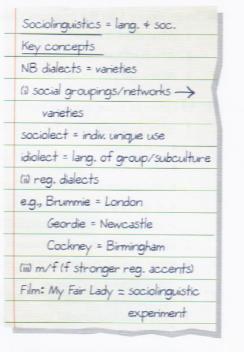 Sociolinguistics = lang. + soc.
Key concepts
NB dialects = varieties
(i) social groupings/networks →
varieties
sociolect = indiv. unique use
idiolect = lang. of group/subculture
(ii) reg. dialects
e.g., Brummie = London
Geordie = Newcastle
Cockney = Birmingham
(iii) m/f (f stronger reg. accents)
Film: My Fair Lady = sociolinguistic
experiment